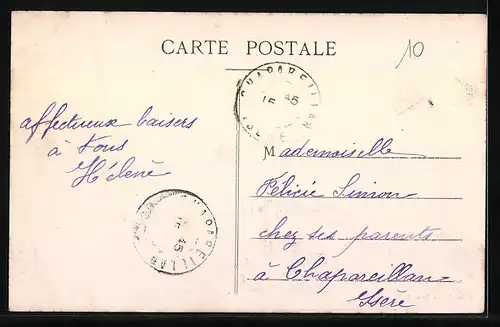 CARTE POSTALE
10
CHAPAREILLAN
15 45
affectueux baisers
à Tous
Hélène
Mademoiselle
Félicie Simon
chez ses parents
à Chapareillan
Isère
CHAPAREILLAN
15 45